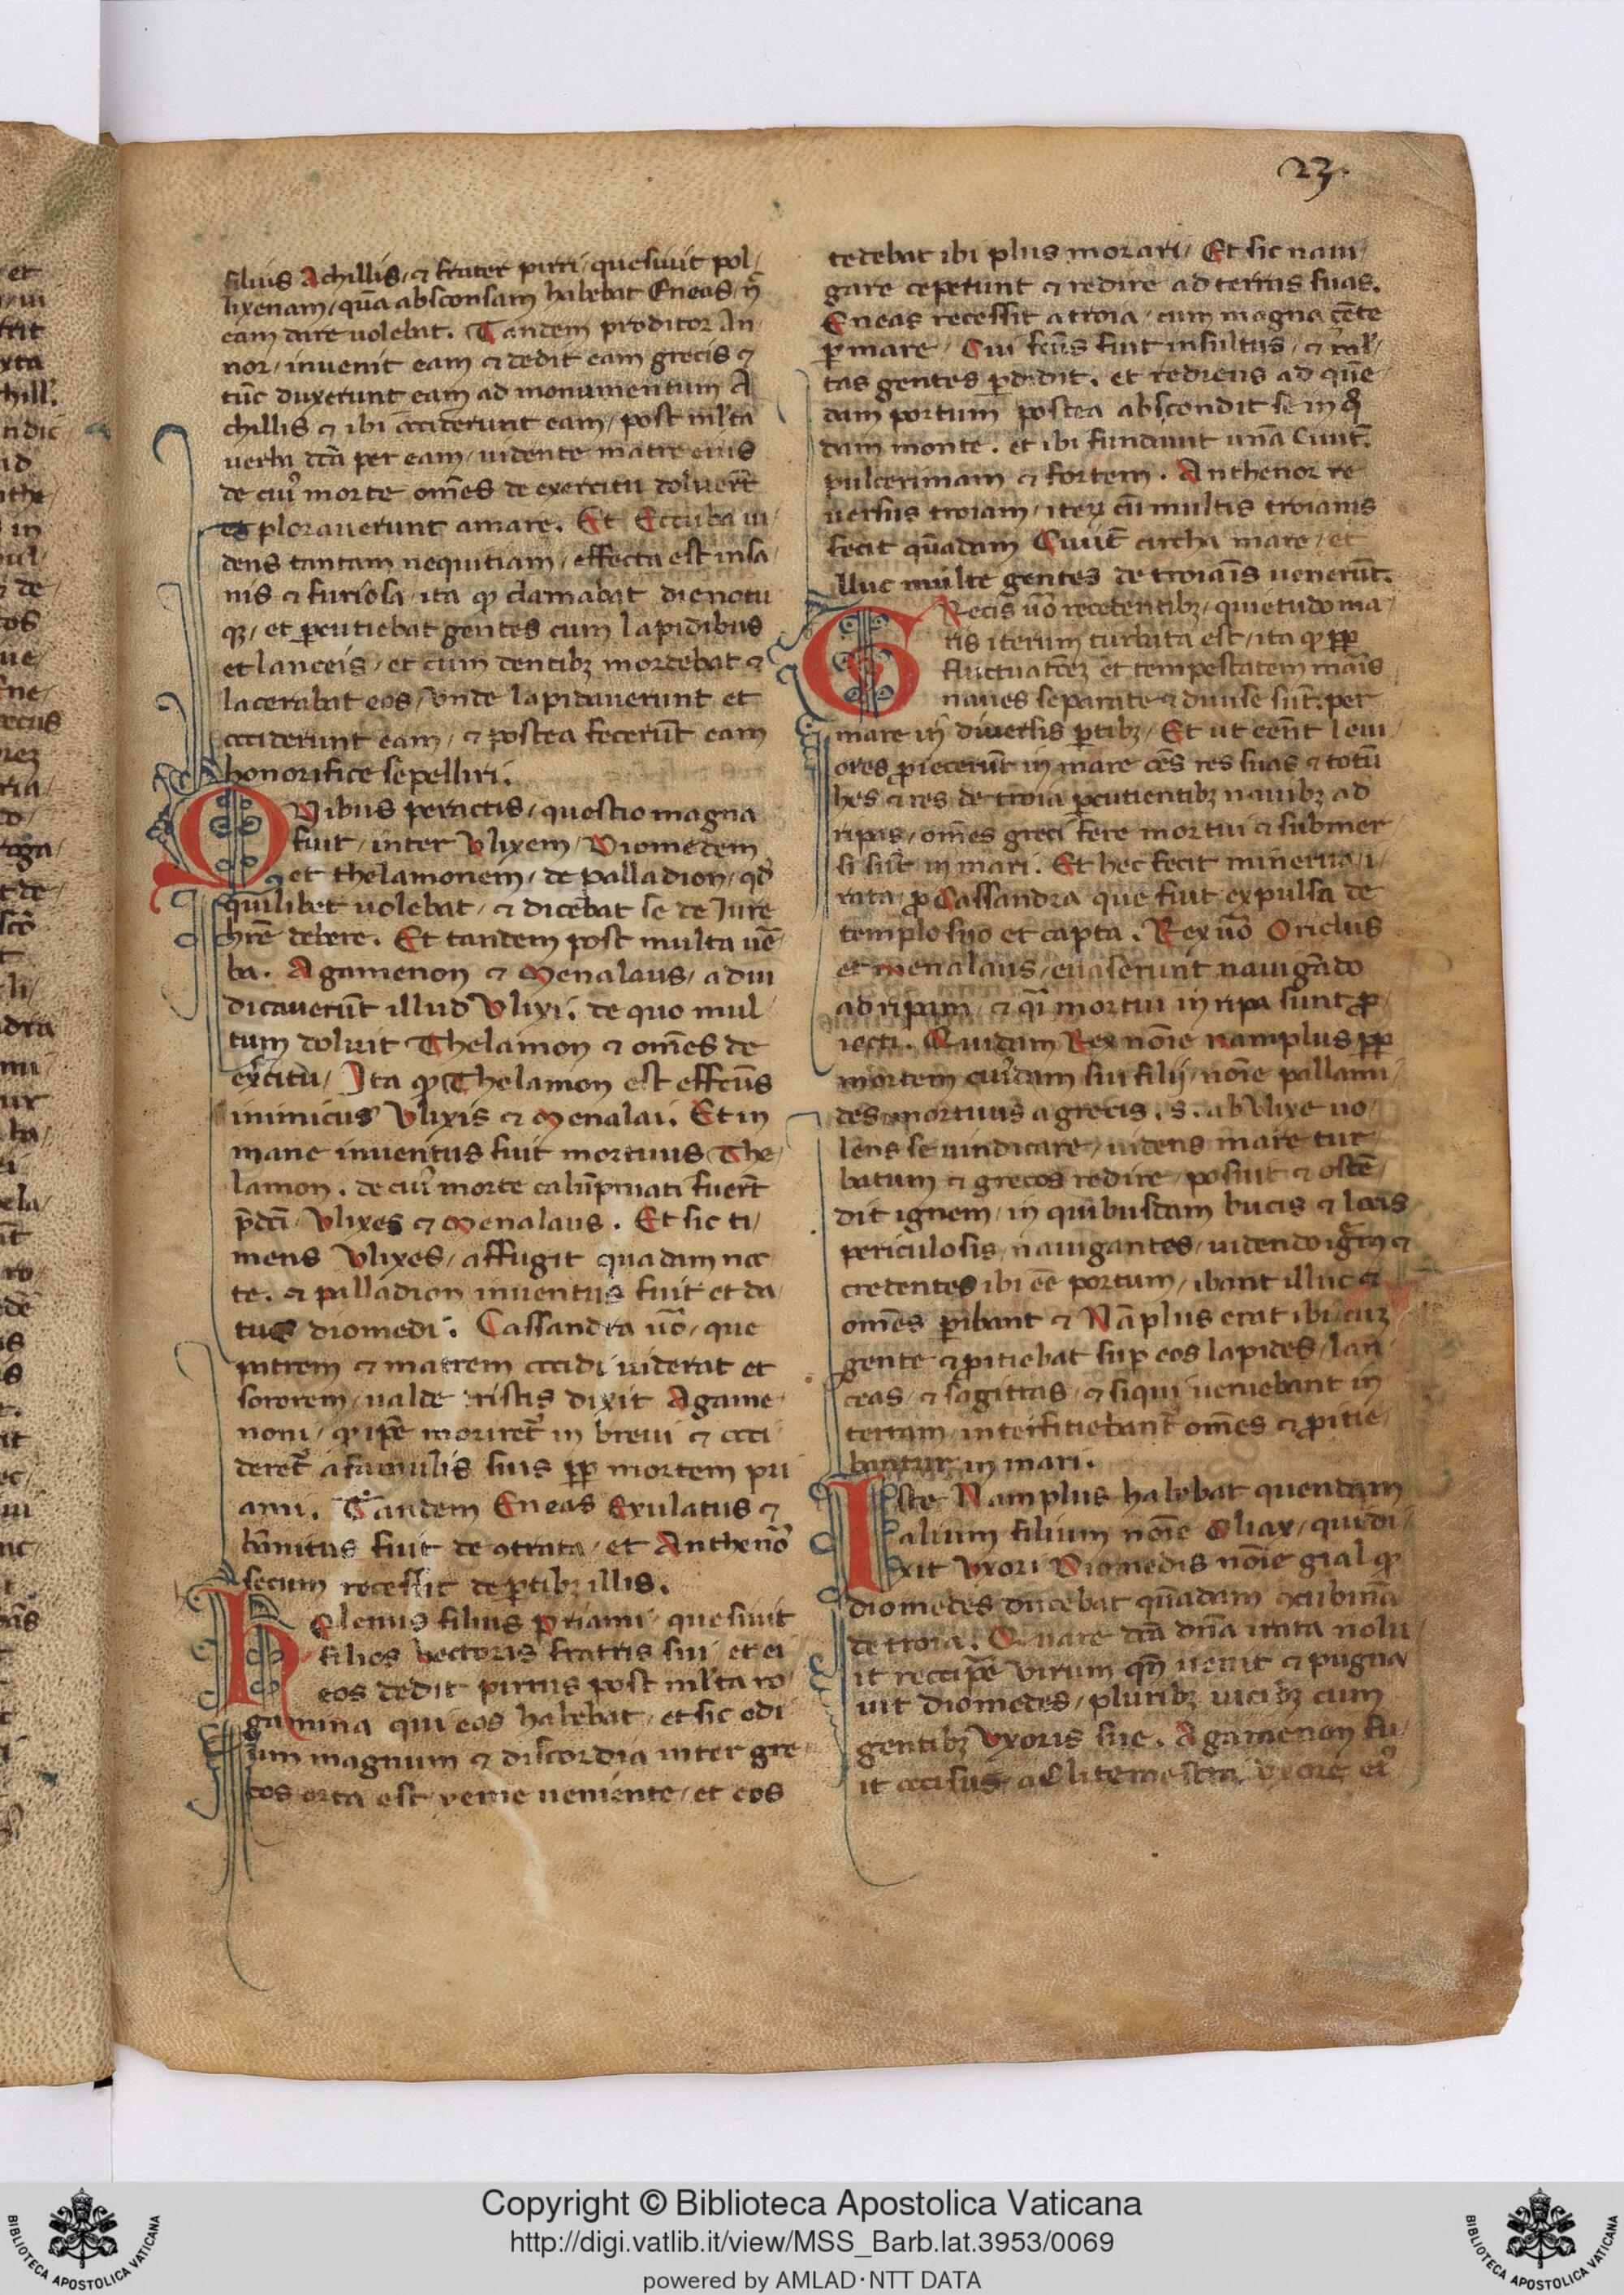 23.
filius Achillis / ⁊ frater pirri / quesiuit pol/
lixenam / quā absconsam habebat Eneas / ⁊ nō
eam dare uolebat. Tandem proditor An
nor / inuenit eam ⁊ dedit eam grecis ⁊
tūc duxerunt eam ad monumentum A
chillis ⁊ ibi occiderunt eam / post m̄lta
uerba dcā per eam / uidente matre eius
de cuiꝰ morte om̄es de exercitu doluerūt
et plorauerunt amare. Et Eccuba ui
dens tantam nequitiam / effecta est insa
nis ⁊ furiosa / ita ꝙ clamabat die noctu
qꝫ / et ꝑcutiebat gentes cum lapidibus
et lanceis / et cum dentibꝫ mordebat ⁊
lacerabat eos / vnde lapidauerunt et
occiderunt eam / ⁊ postea fecerūt eam
honorifice sepelliri.
QVibus peractis / questio magna
fuit / inter Vlixem / Diomedem
et thelamonem / de palladion / qď
quilibet uolebat / ⁊ dicebat se de Iure
hr̄e debere. Et tandem post multa uē
ba. Agamenon ⁊ Menalaus / adiu
dicauerūt illud Vlixi. de quo mul
tum doluit Thelamon ⁊ om̄es de
exercitu / Ita ꝙ Thelamon est effcūs
inimicus Vlixis ⁊ Menalai. Et in
mane inuentus fuit mortuus The/
lamon. de cuiꝰ morte calūpniati fuerūt
p̄dcī Vlixes ⁊ Menalaus. Et sic ti/
mens Vlixes / affugit quadam noc
te. ⁊ palladion inuentus fuit et da/
tus diomedi. Cassandra uō / que
patrem ⁊ matrem occidi uiderat et
sororem / ualde tristis dixit Agame
noni / ꝙ ip̄e moriret᷑ in breui ⁊ occi
deret᷑ a famulis suis ꝓp mortem pri
ami. Tandem Eneas Exulatus ⁊
bānitus fuit de ꝯtrata / et Anthenor
secum recessit de ꝑtibꝫ illis.
Helenus filius priami / quesiuit
filios hectoris fratris sui / et ei
eos dedit pirrus post m̄lta ro/
gamina qui eos habebat / et sic odi
um magnum ⁊ discordia inter gre
cos orta est / yeme ueniente / et eos
tedebat ibi plus morari / Et sic naui
gare ceperunt ⁊ redire ad terras suas.
Eneas recessit a troia / cum magna gēte
ꝑ mare / Cui fcūs fuit insultus / ⁊ ml̄/
tas gentes ꝑdidit. et rediens ad quē
dam portum postea abscondit se in q̄
dam monte. et ibi fundauit unā Ciuit̄.
pulcerimam ⁊ fortem. Anthenor re
uersus troiam / iteꝝ cū multis troianis
fecit quādam Ciuit̄ circha mare / et
illuc multe gentes de troianis uenerūt.
GRecis uō recedentibꝫ / quietudo ma
ris iterum turbata est / ita ꝙ ꝓp
fluctuatōeꝫ et tempestatem maris
naues separate ⁊ diuise sūt. per
mare in diuersis ꝑtibꝫ / Et ut eēnt leui
ores ꝓiecerūt in mare oēs res suas ⁊ totū
hes ⁊ res de troia ꝑcutientibꝫ nauibꝫ ad
ripas / om̄es greci fere mortui ⁊ submer
si sūt in mari. Et hec fecit minerua / i
rata ꝓ Cassandra que fuit expulsa de
templo suo et capta. Rex uō Oricius
et menalaus / euaserunt nauigādo
ad ripam / ⁊ q̄i mortui in ripa sunt ꝓ
iecti. Quidam Rex noīe namplus ꝓp
mortem cuiꝰdam sui filij / noīe pallami
des mortuus a grecis. s. ab Vlixe uo
lens se uindicare / uidens mare tur
batum ⁊ grecos redire / posuit ⁊ ostē
dit ignem / in quibusdam bucis ⁊ locis
periculosis / nauigantes / uidendo ignem ⁊
credentes ibi eē portum / ibant illuc ⁊
om̄es ꝑibant ⁊ Nāplus erat ibi cuꝫ
gente ⁊ ꝓitiebat suꝑ eos lapides / lan
ceas / ⁊ sagittas / ⁊ siqui ueniebant in
terram / interfitiebant᷑ om̄es ⁊ ꝓitie
bantur in mari.
Iste Namplus habebat quendam
alium filium noīe Oliax / qui di
xit Vxori Diomedis noīe gial ꝙ
diomedes ducebat quādam ꝯcubinā
de troia. Quare dcā dn̄a irata nolu
it reciꝑe virum qn̄ uenit ⁊ pugna
uit diomedes / pluribꝫ uicibꝫ cum
gentibꝫ Vxoris sue. Agamenon fu
it occisus a Clitemestra Vxore eiꝰ
Copyright © Biblioteca Apostolica Vaticana
http://digi.vatlib.it/view/MSS_Barb.lat.3953/0069
powered by AMLAD·NTT DATA
BIBLIOTECA APOSTOLICA VATICANA
BIBLIOTECA APOSTOLICA VATICANA